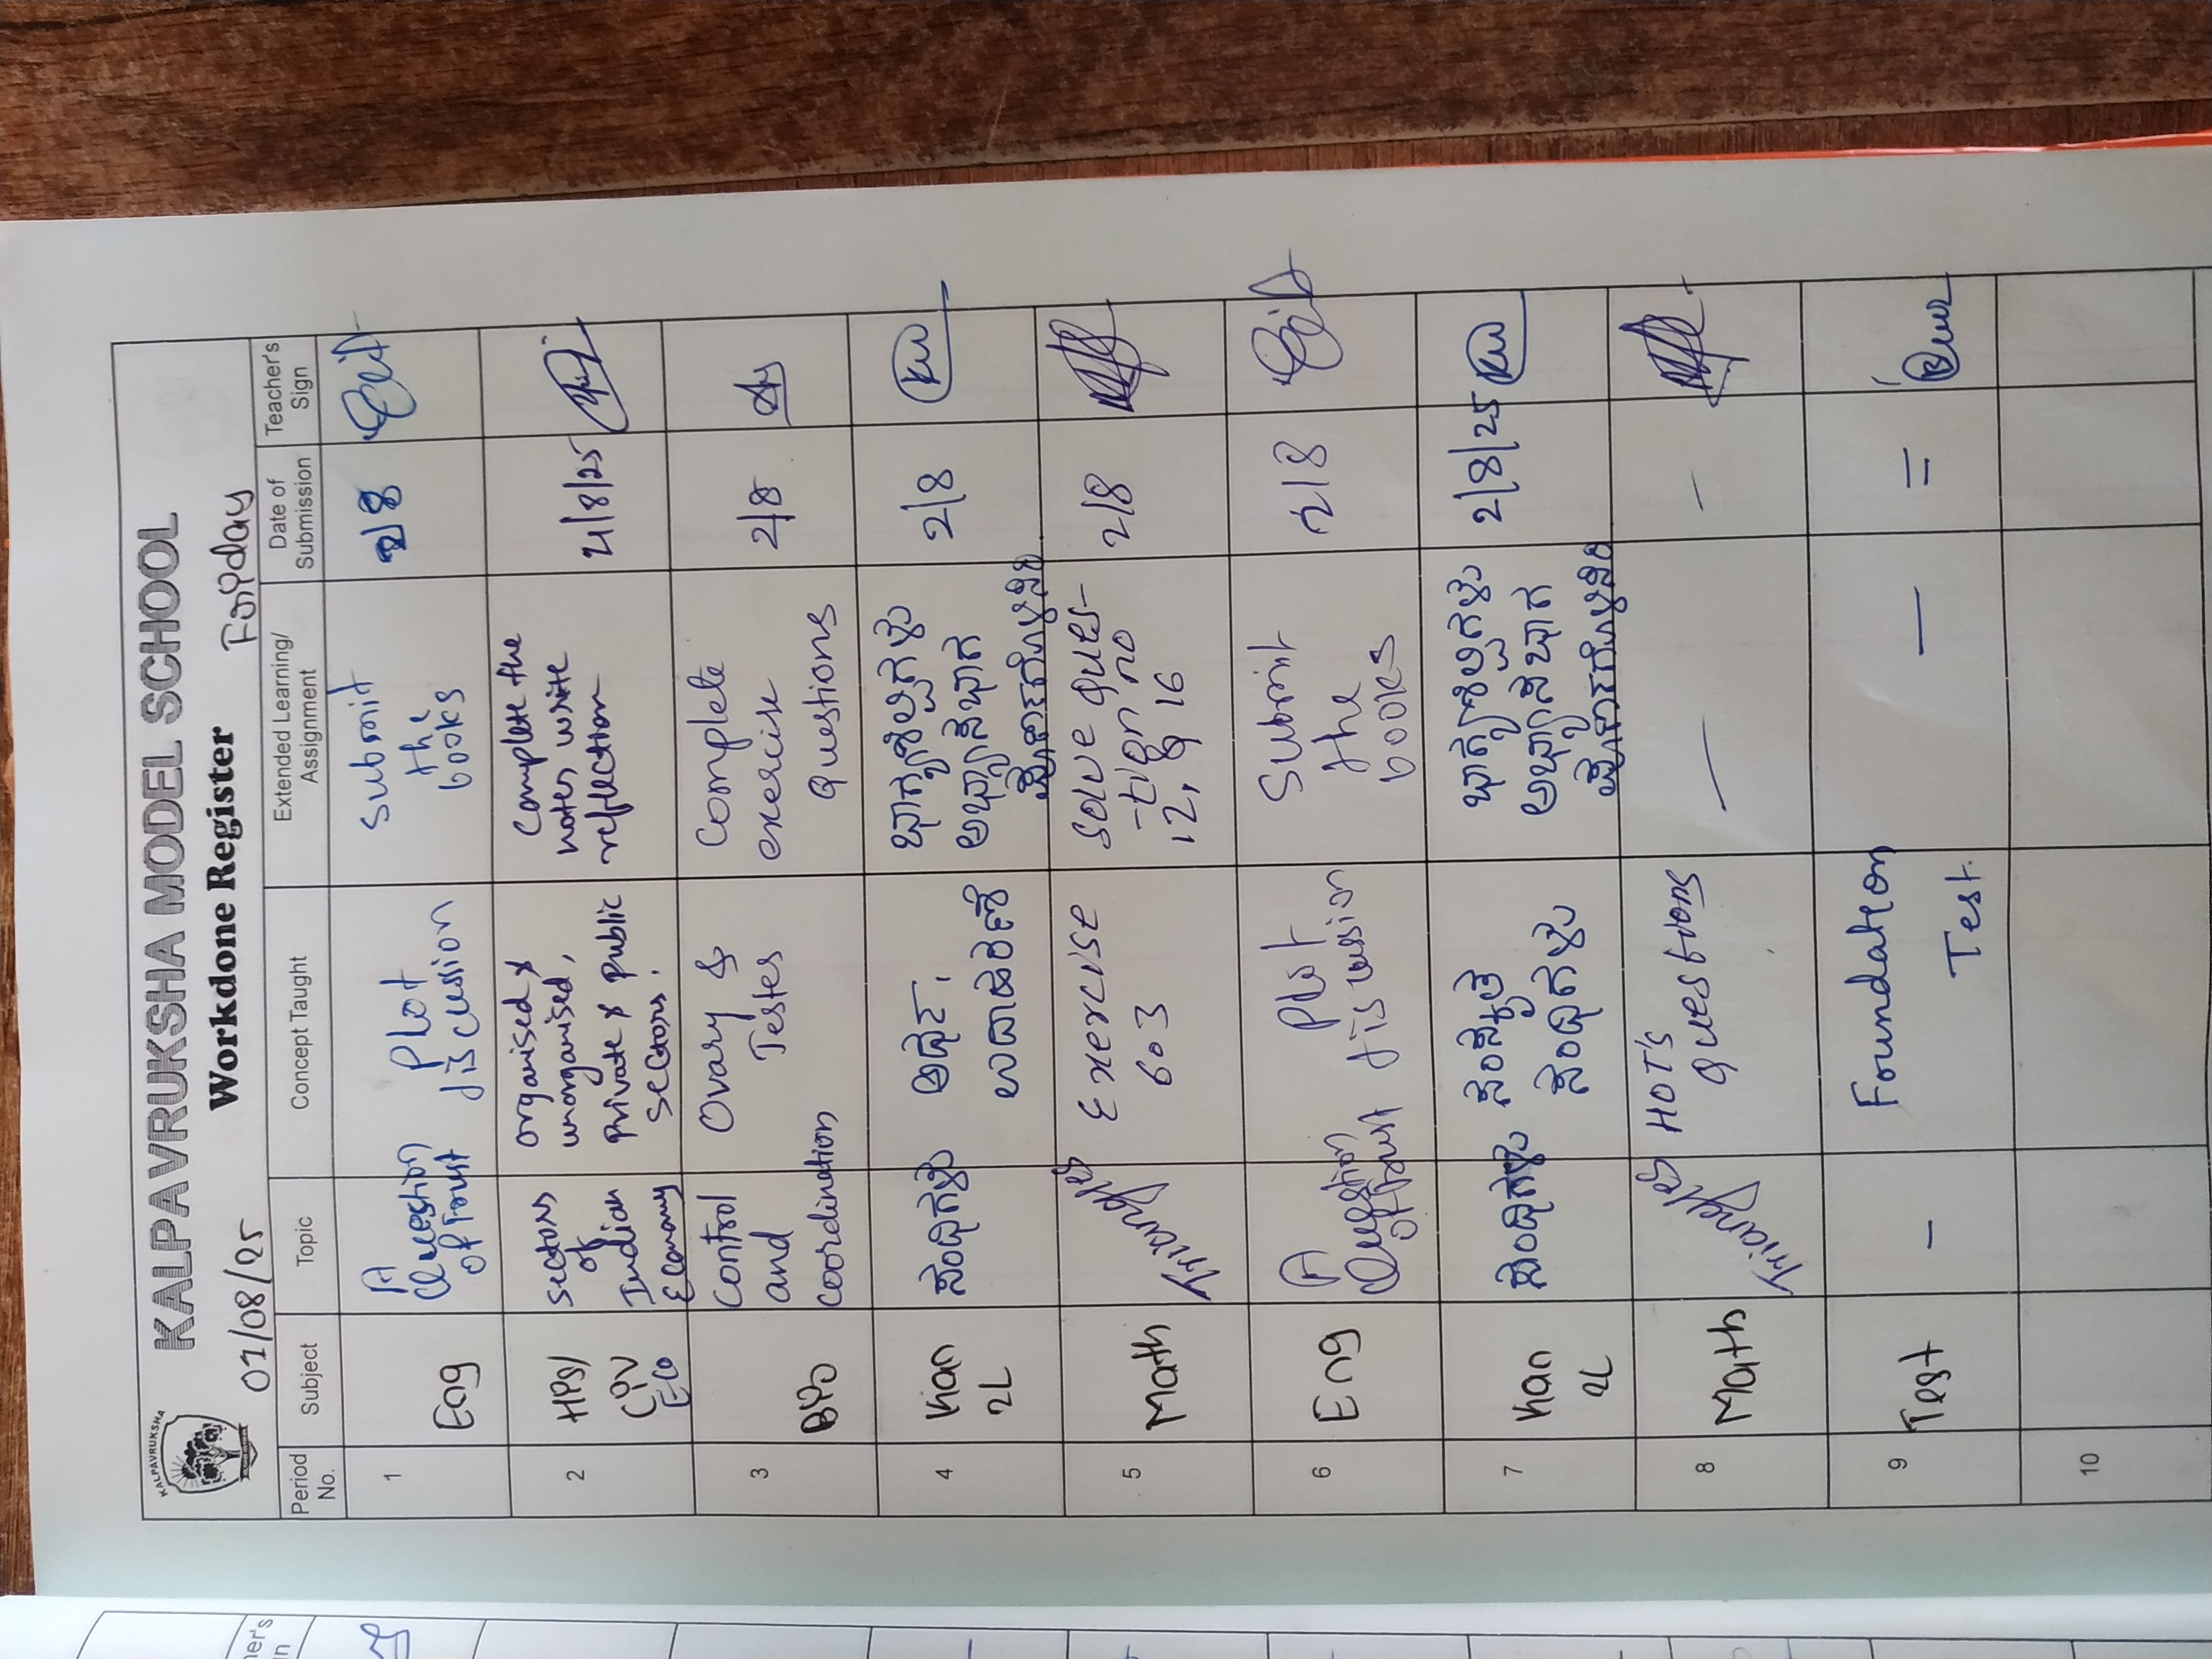 KALPAVRUKSHA
KALPAVRUKSHA MODEL SCHOOL
Workdone Register
01/08/25
Friday
Period No.
Subject
Topic
Concept Taught
Extended Learning/ Assignment
Date of Submission
Teacher's Sign
1
Eng
A
Question
of Trust
Plot
discussion
Submit
the
books
2/8
2
HPS/
CIV
ECO
Sectors
of
Indian
Economy
organised &
unorganised,
Private & Public
sectors.
Complete the
notes, write
reflection
2/8/25
3
BIO
Control
and
Coordination
Ovary &
Testes
Complete
exercise
questions
2/8
4
Kan
2L
ಸಂಧಿಗಳು
ಅರ್ಥ,
ಉದಾಹರಣೆ
ಅಭ್ಯಾಸ
2/8
5
Math
Triangles
Exercise
6.3
solve ques-
-tion no
12, & 16
2/8
6
Eng
A
Question
of Trust
Plot
discussion
Submit
the
books
2/8
7
Kan
2L
ಸಂಧಿಗಳು
ಸಂಸ್ಕೃತ
ಸಂಧಿಗಳು
ಅಭ್ಯಾಸ
2/8/25
8
Math
Triangles
HOT's
questions
—
—
9
Test
-
Foundation
Test.
—
=
10